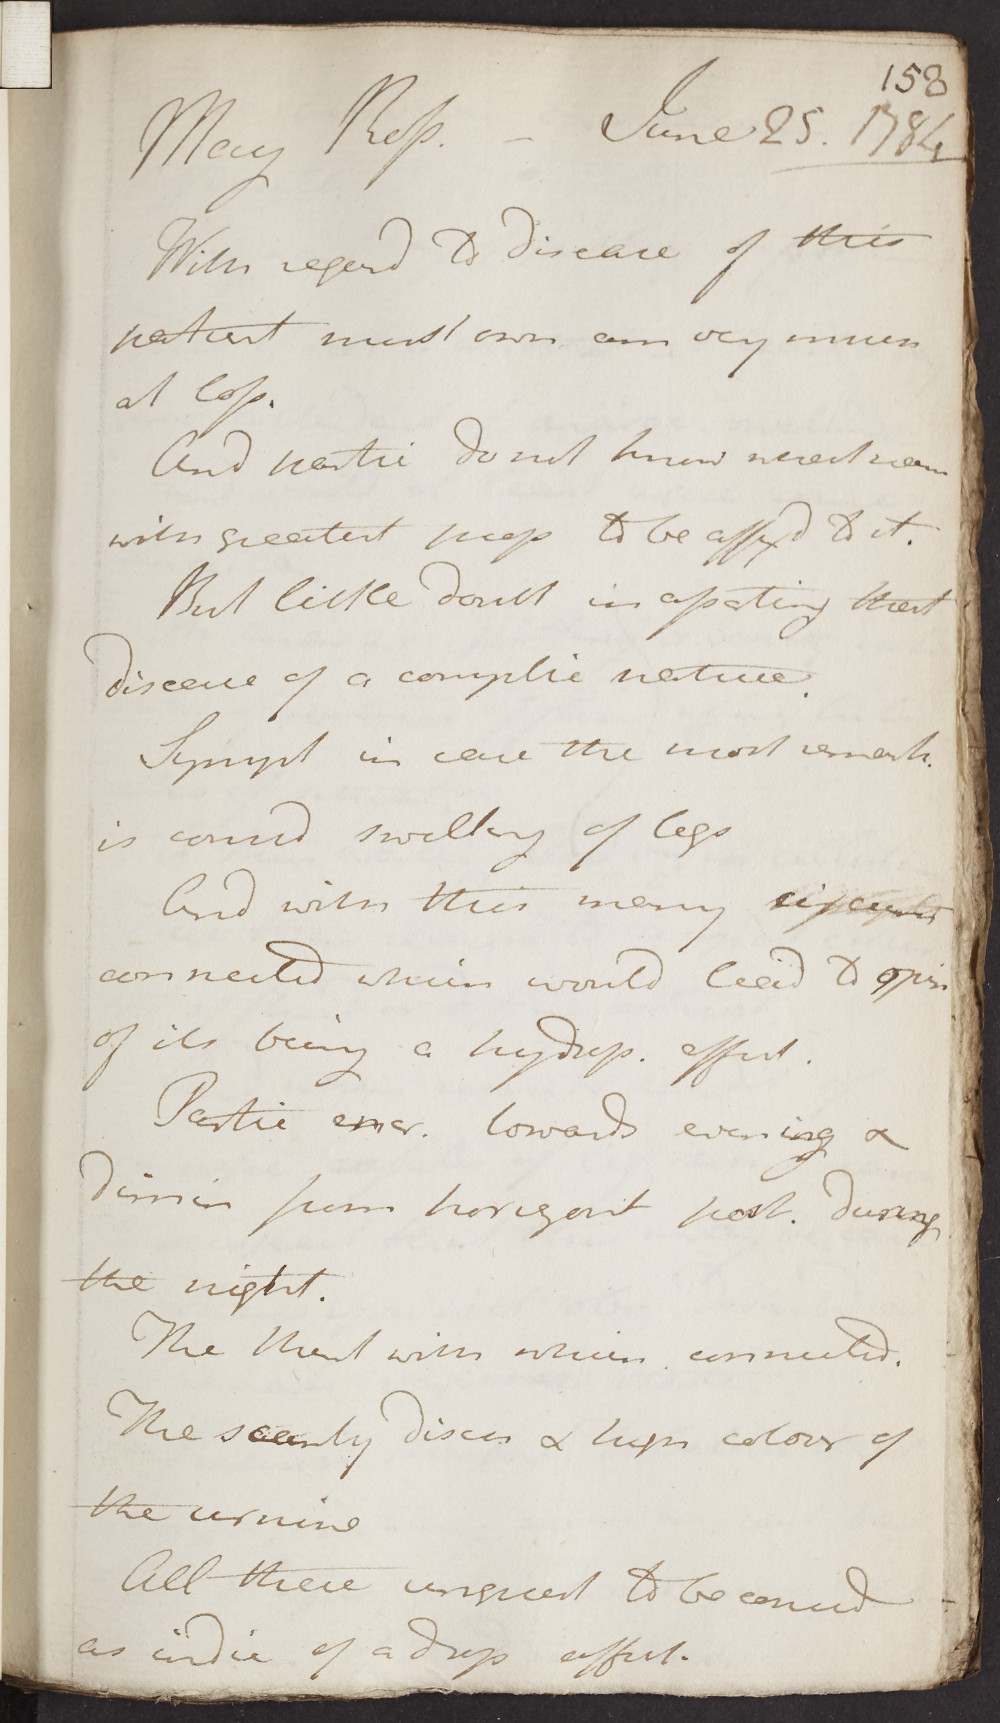 158
Mary Ross. - June 25. 1784
With regard to disease of this
patient must own am very much
at loss.
And partic do not know what name
with greatest prop to be affixd to it.
But little doubt in asserting that
disease of a complic nature.
Sympt in case the most remark.
is consid swelling of legs
And with this many circumst
connected which would lead to opin
of its being a hydrop. affect.
Partic encr. towards evening &
dimin from horizont post. during
the night.
The thirst with which connected.
The scanty disch & high colour of
the urnine
All these unquest to be consid
as indic of a drop affect.